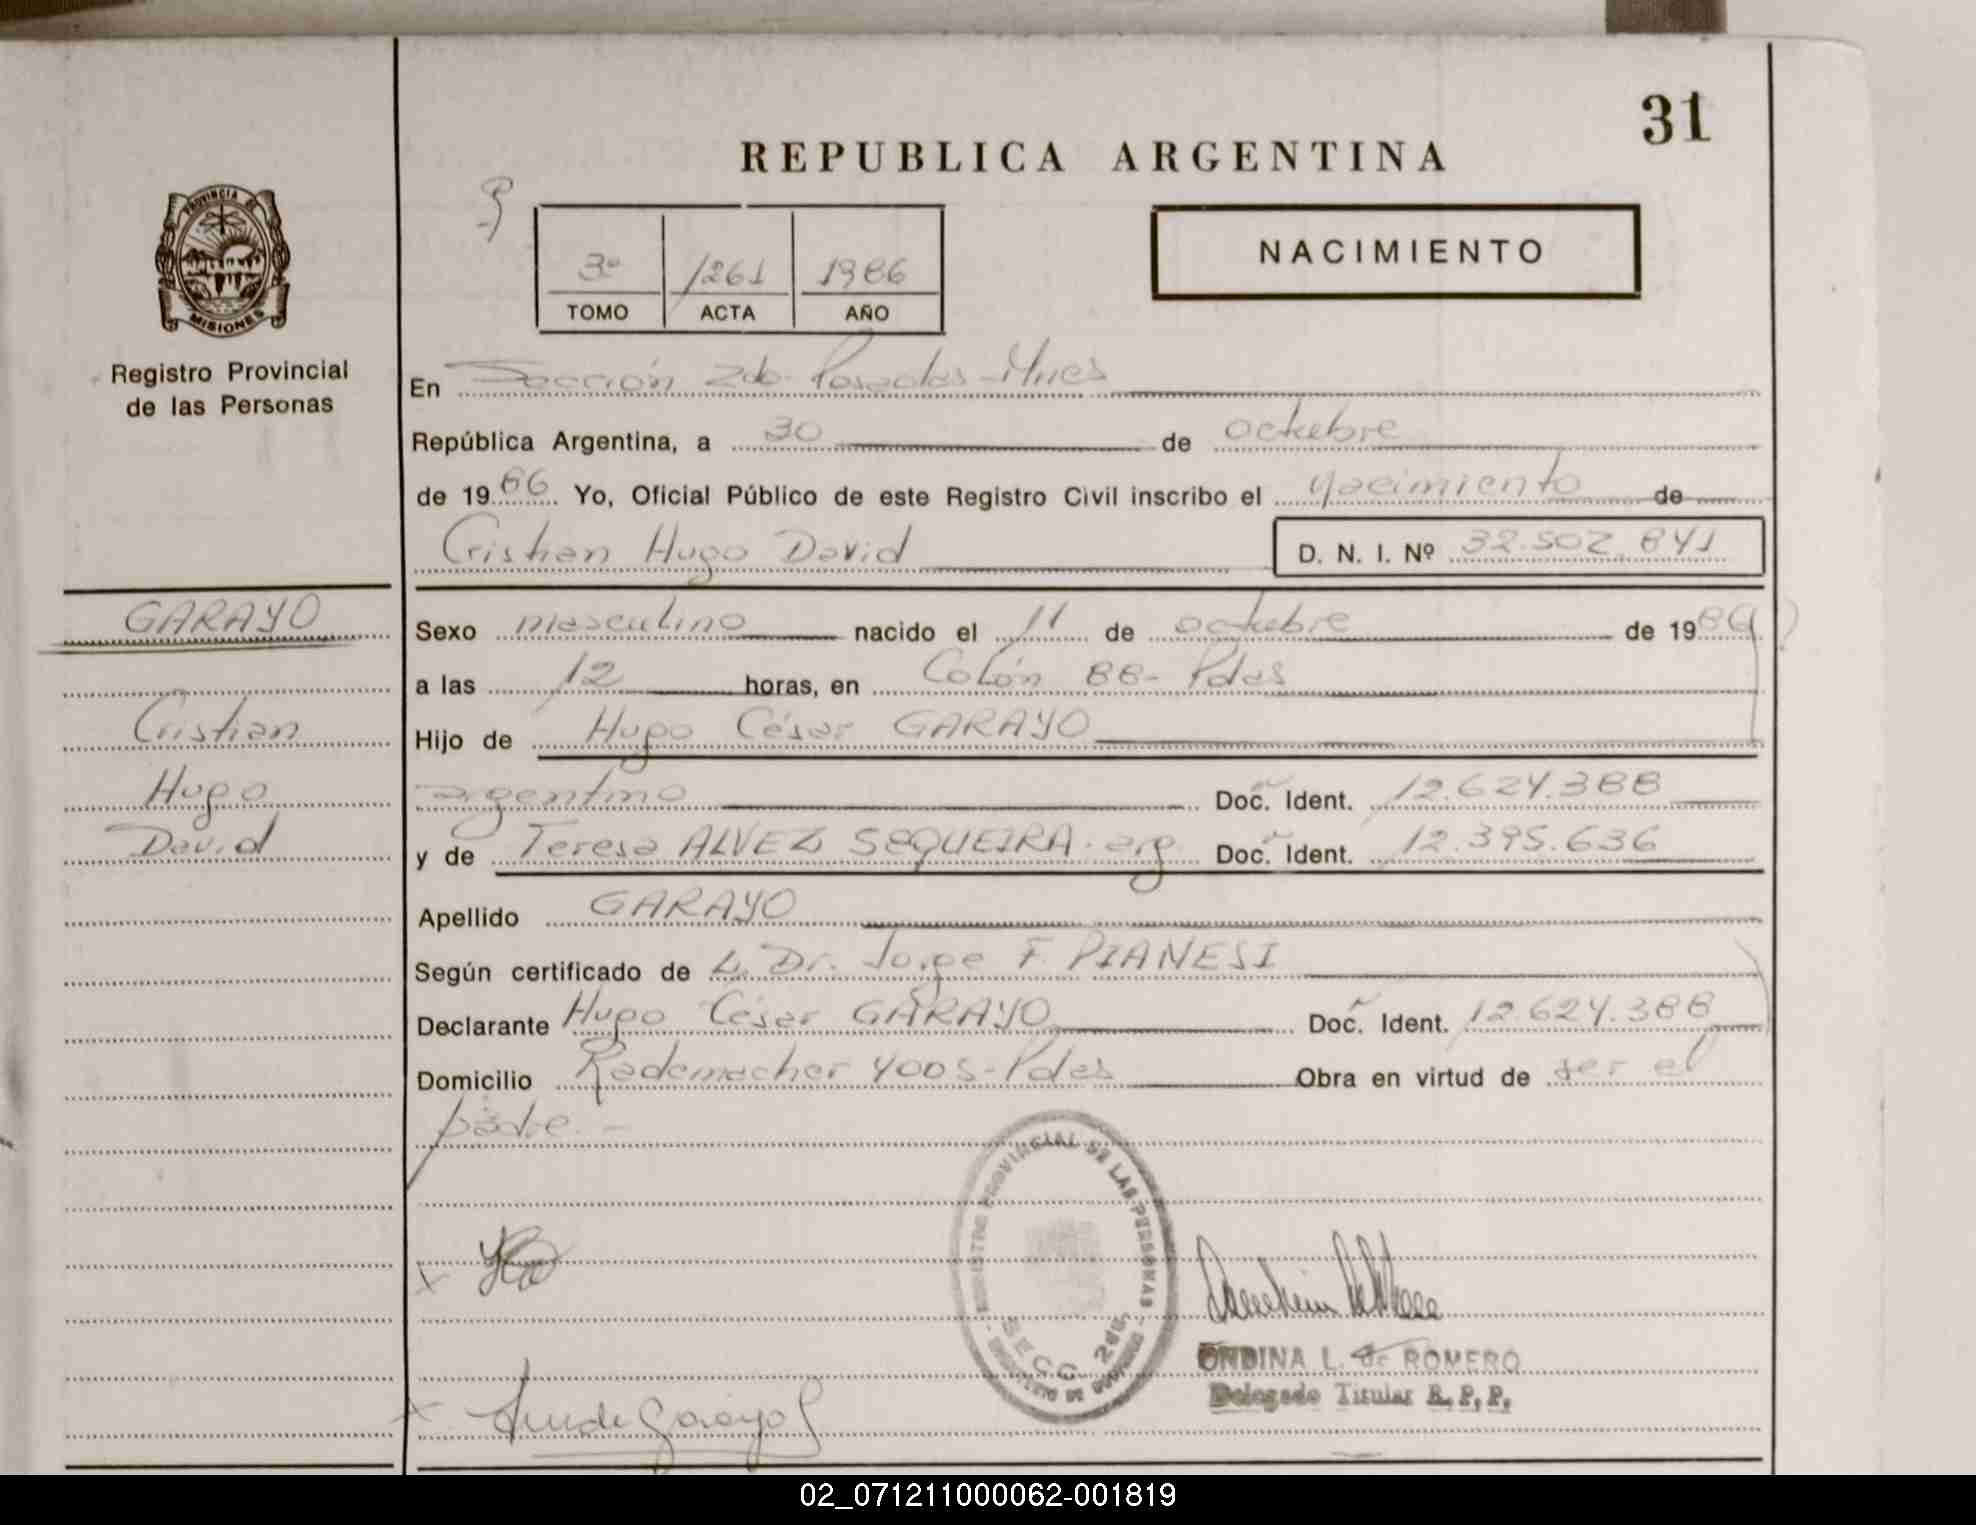 31
REPUBLICA ARGENTINA
PROVINCIA DE
MISIONES
Registro Provincial
de las Personas
3º /261 1986
TOMO ACTA AÑO
NACIMIENTO
En Sección 2da- Posadas-Mnes
República Argentina, a 30 de octubre
de 1986 Yo, Oficial Público de este Registro Civil inscribo el nacimiento de
Cristian Hugo David D. N. I. Nº 32.502.841
GARAYO
Sexo masculino nacido el 11 de octubre de 1986
a las 12 horas, en Colón 88- Pdas
Cristian
Hijo de Hugo César GARAYO
Hugo
argentino Doc. Ident. 12.624.388
David
y de Teresa ALVEZ SEQUEIRA. arg. Doc. Ident. 12.395.636
Apellido GARAYO
Según certificado de L. Dr. Jorge F. PIANESI
Declarante Hugo César GARAYO Doc. Ident. 12.624.388
Domicilio Rademacher 4005-Pdas Obra en virtud de ser el
padre.-
REGISTRO PROVINCIAL DE LAS PERSONAS
SECC. 2da.
ONDINA L. de ROMERO
Delegado Titular R. P. P.
de Garayo
02_071211000062-001819